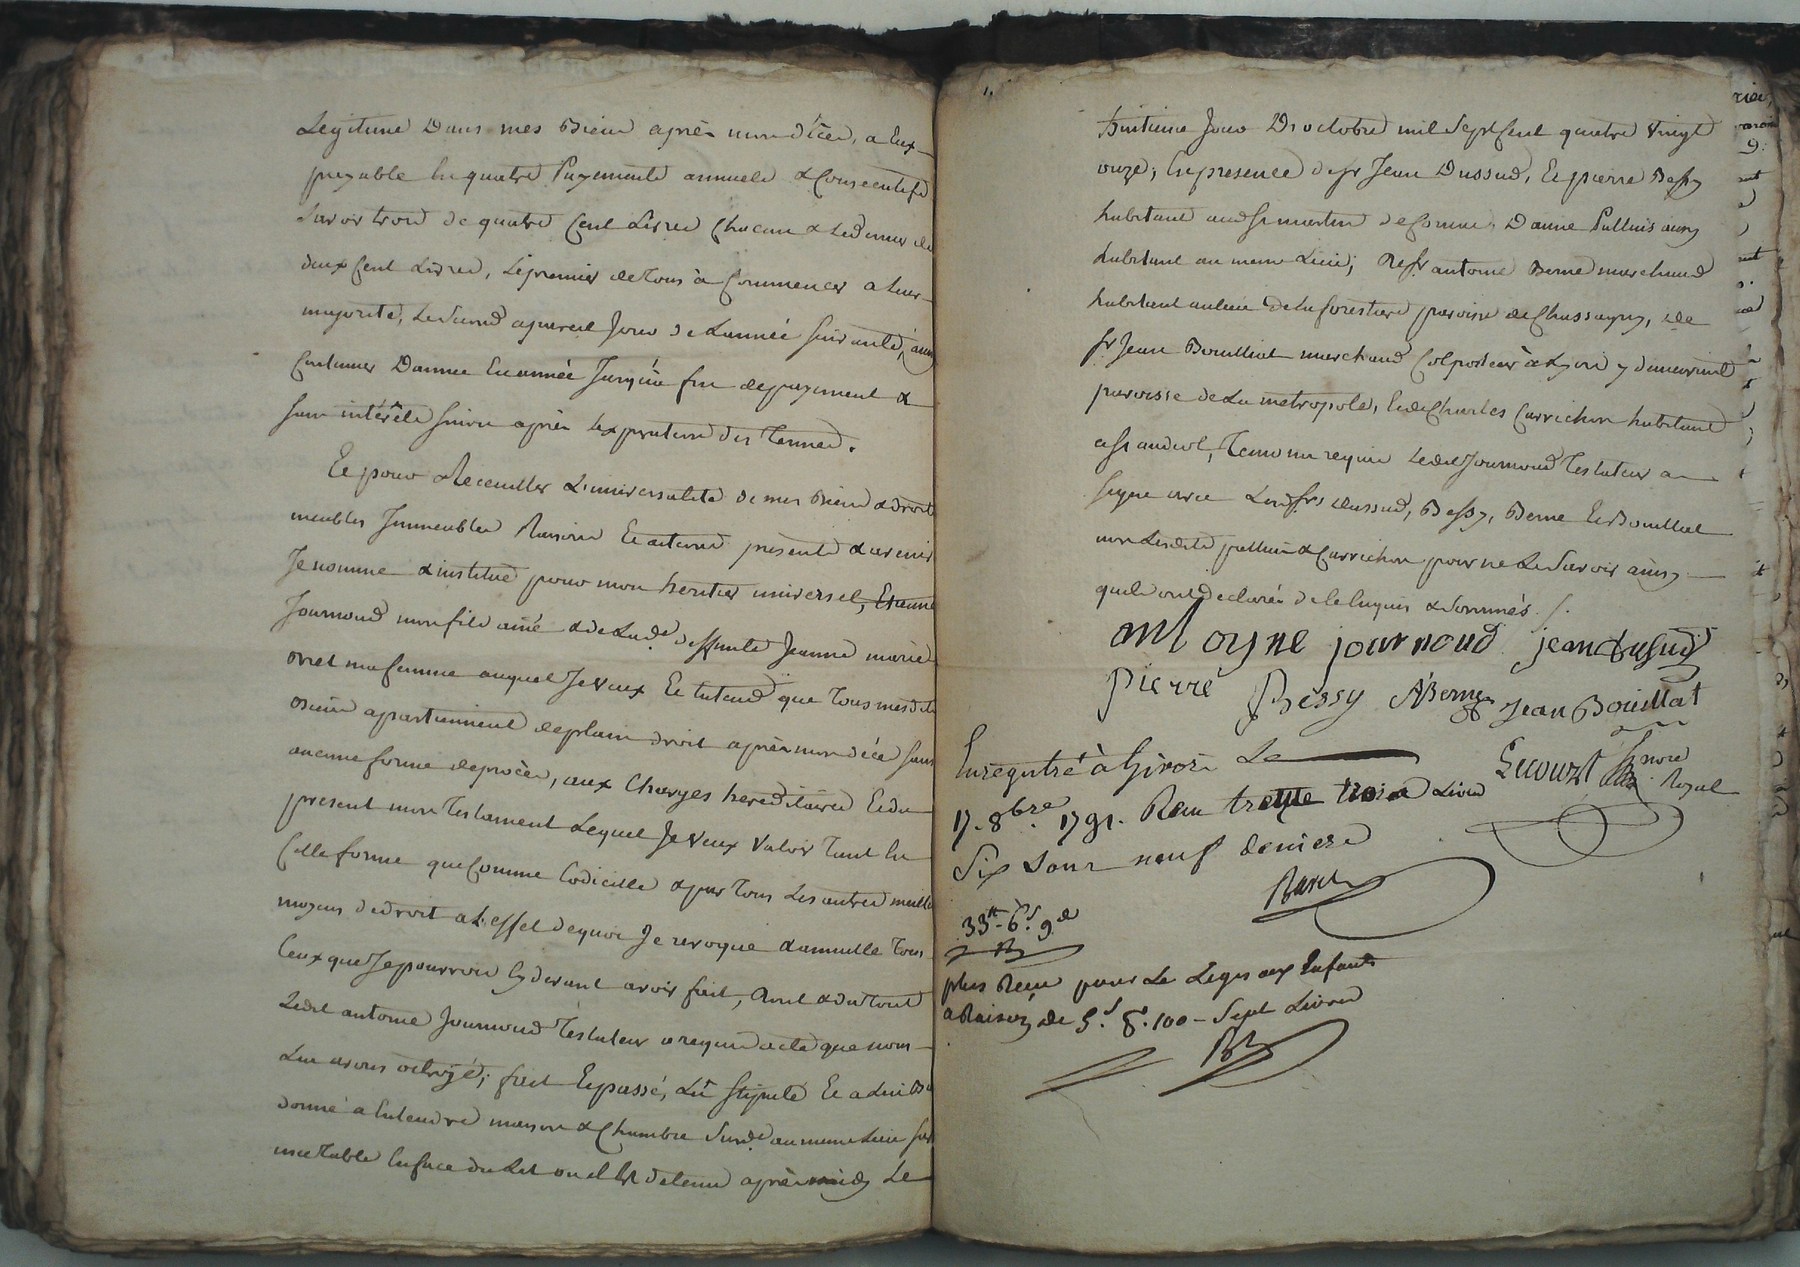 Legitime Dans mes Biens après mon décès, a Eux
payable En quatre Payements annuels & Consecutifs
Savoir trois de quatre Cent Livres Chacun & Le Dernier de
deux Cent Livres, Le premier de tous à Commencer a Leur
majorité, Le Second a pareil Jour de L'année suivante, ainsi
Continuer D'année En année Jusqu'à fin de payement &
sans intérêts sinon après L'expiration des Termes.
Et pour Receuiller L'universalité de mes Biens & droits
meubles Immeubles Raisons Et actions présents & avenir
Je nomme & institue pour mon heritier universel, Etienne
Journoud mon fils ainé & de Lade deffunte Jeanne marie
ma femme auquel Je veux Et Entends que Tous mesdits
Biens apartiennent de plain droit après mon décès sans
aucune forme de procès, aux Charges hereditaires Et du
présent mon Testament Lequel Je veux valoir Tant En
Cette forme que Comme Codicille & par Tous Les autres meilleurs
moyens de droit a L'effet de quoi Je revoque & annulle Tous
Ceux que Je pourrois Cy devant avoir fait, dont & du tout
Ledit antoine Journoud Testateur a requis acte que nous
Lui avons octroyé; fait Et passé, Lu Stipulé Et
donné a Entendre maison & Chambre Susde au même Lieu sur
une Table En face du Lit ou il Est detenu après midy Le
huitieme Jour D'octobre mil Sept Cent quatre vingt
onze, En presence de sr Jean Dussud, Et pierre Bessy
habitant aud St martin de Cornas, D'anne Pallnis aussy
habitant au meme Lieu; De sr antoine Berne marchand
habitant au Lieu de La forestiere paroisse de Chassagny, & de
sr Jean Bouillat marchand Colporteur à Lyon y demeurant
paroisse de La metropole, Et de Charles Carrichon habitant
a St andeol, Temoins requis Ledit Journoud Testateur a
signé avec Lesd srs Dussud, Bessy, Berne Et Bouillat
non Lesdits & Carrichon pour ne Le Savoir ainsy
qu'ils ont declaré de ce Enquis & Sommés /.
antoyne journoud jean dusud
pierre Bessy A Berne Jean Bouillat
Enregistré à Givors Le Lecourt nore Royal
17. 8bre. 1791. Reçu trente trois Livres
Six Sous neuf deniers
33tt. 6s. 9d
plus Reçu pour Le Legs aux Enfants
a Raison de 5s. P. 100 - Sept Livres